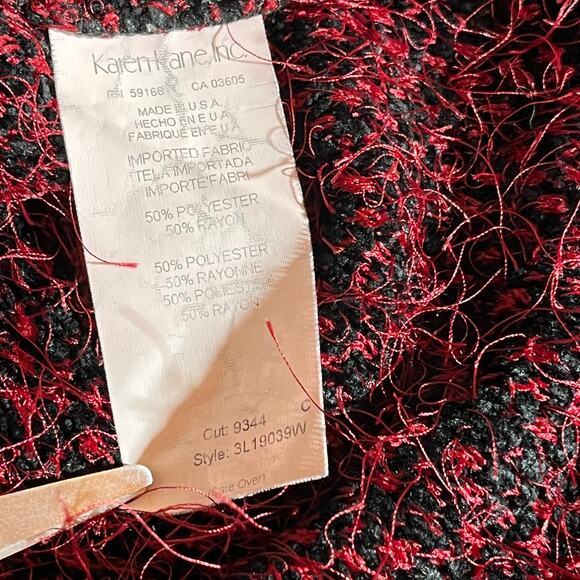 Karen Kane, Inc.
59168 CA 03605
MADE IN U.S.A.
HECHO EN E.U.A.
FABRIQUE EN E.U.A.
IMPORTED FABRIC
TELA IMPORTADA
IMPORTE FABRI
50% POLYESTER
50% RAYON
50% POLYESTER
50% RAYONNE
50% POLIESTER
50% RAYON
C
Cut: 9344
Style: 3L19039W
(Care Over)